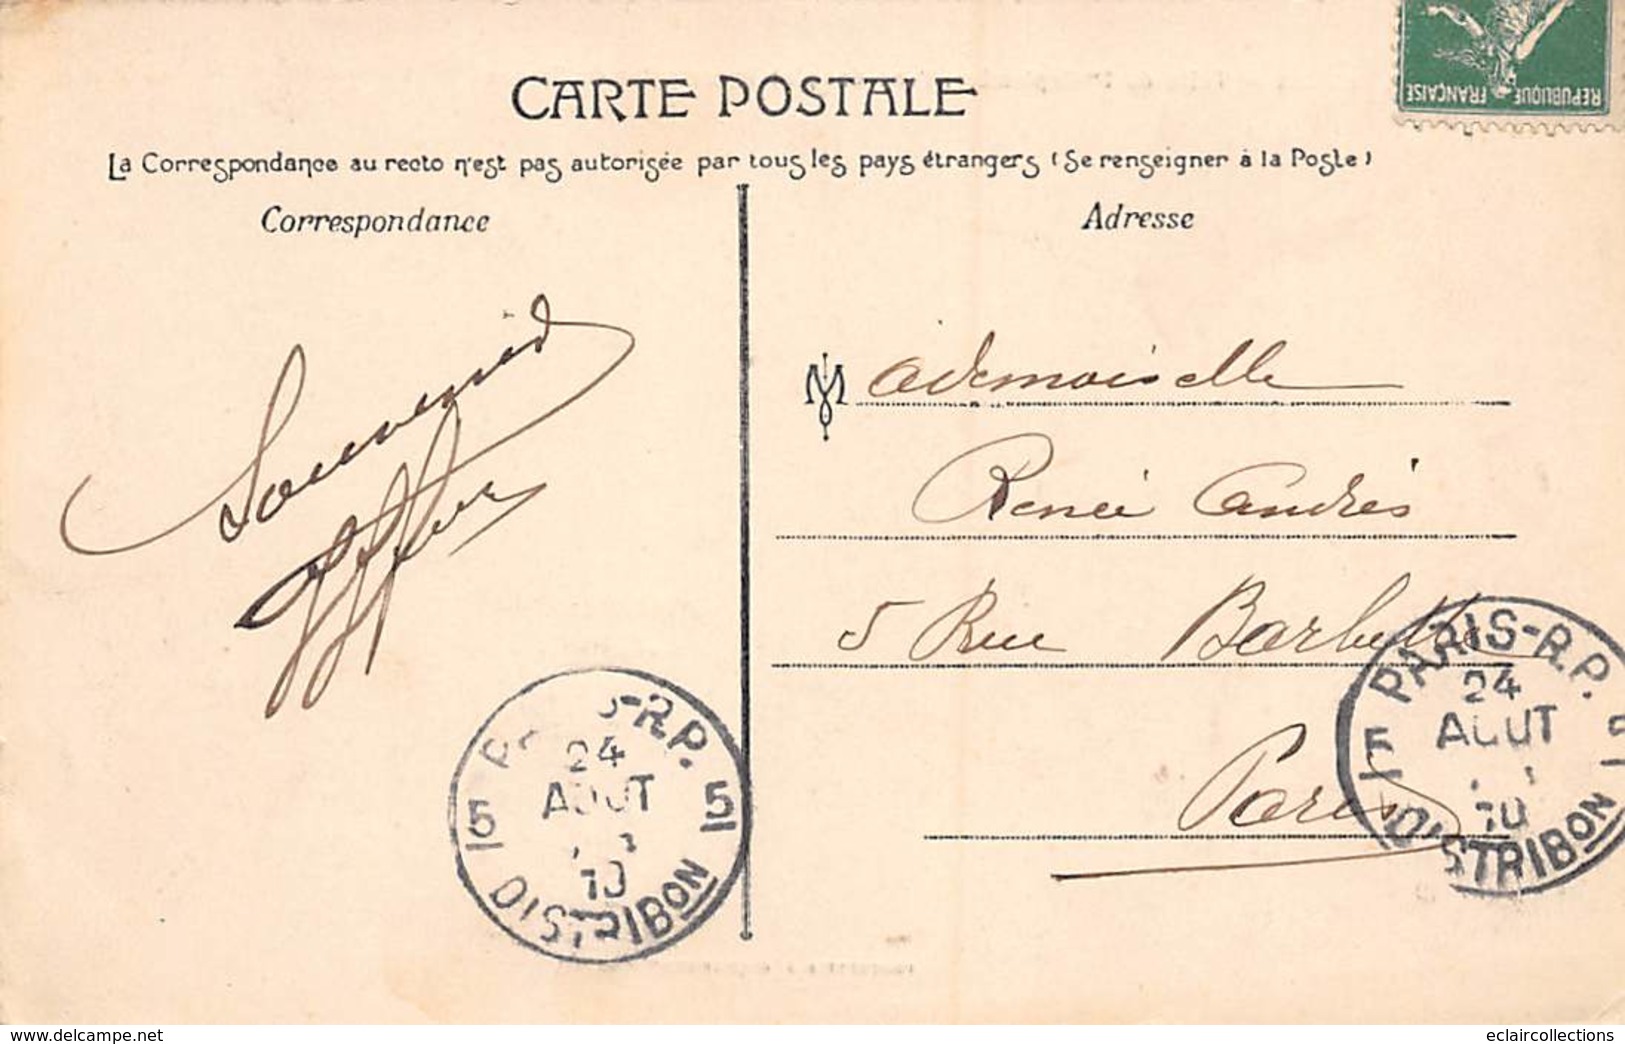 REPUBLIQUE FRANÇAISE
CARTE POSTALE
La Correspondance au recto n'est pas autorisée par tous les pays étrangers (Se renseigner à la Poste)
Correspondance
Adresse
Souvenir
Mademoiselle
Renée Andrés
5 Rue Barbette
Paris
PARIS-R.P.
24
AOUT
10
5 5
DISTRIBON
PARIS-R.P.
24
AOUT
10
5 5
DISTRIBON
www.delcampe.net
eclaircollections